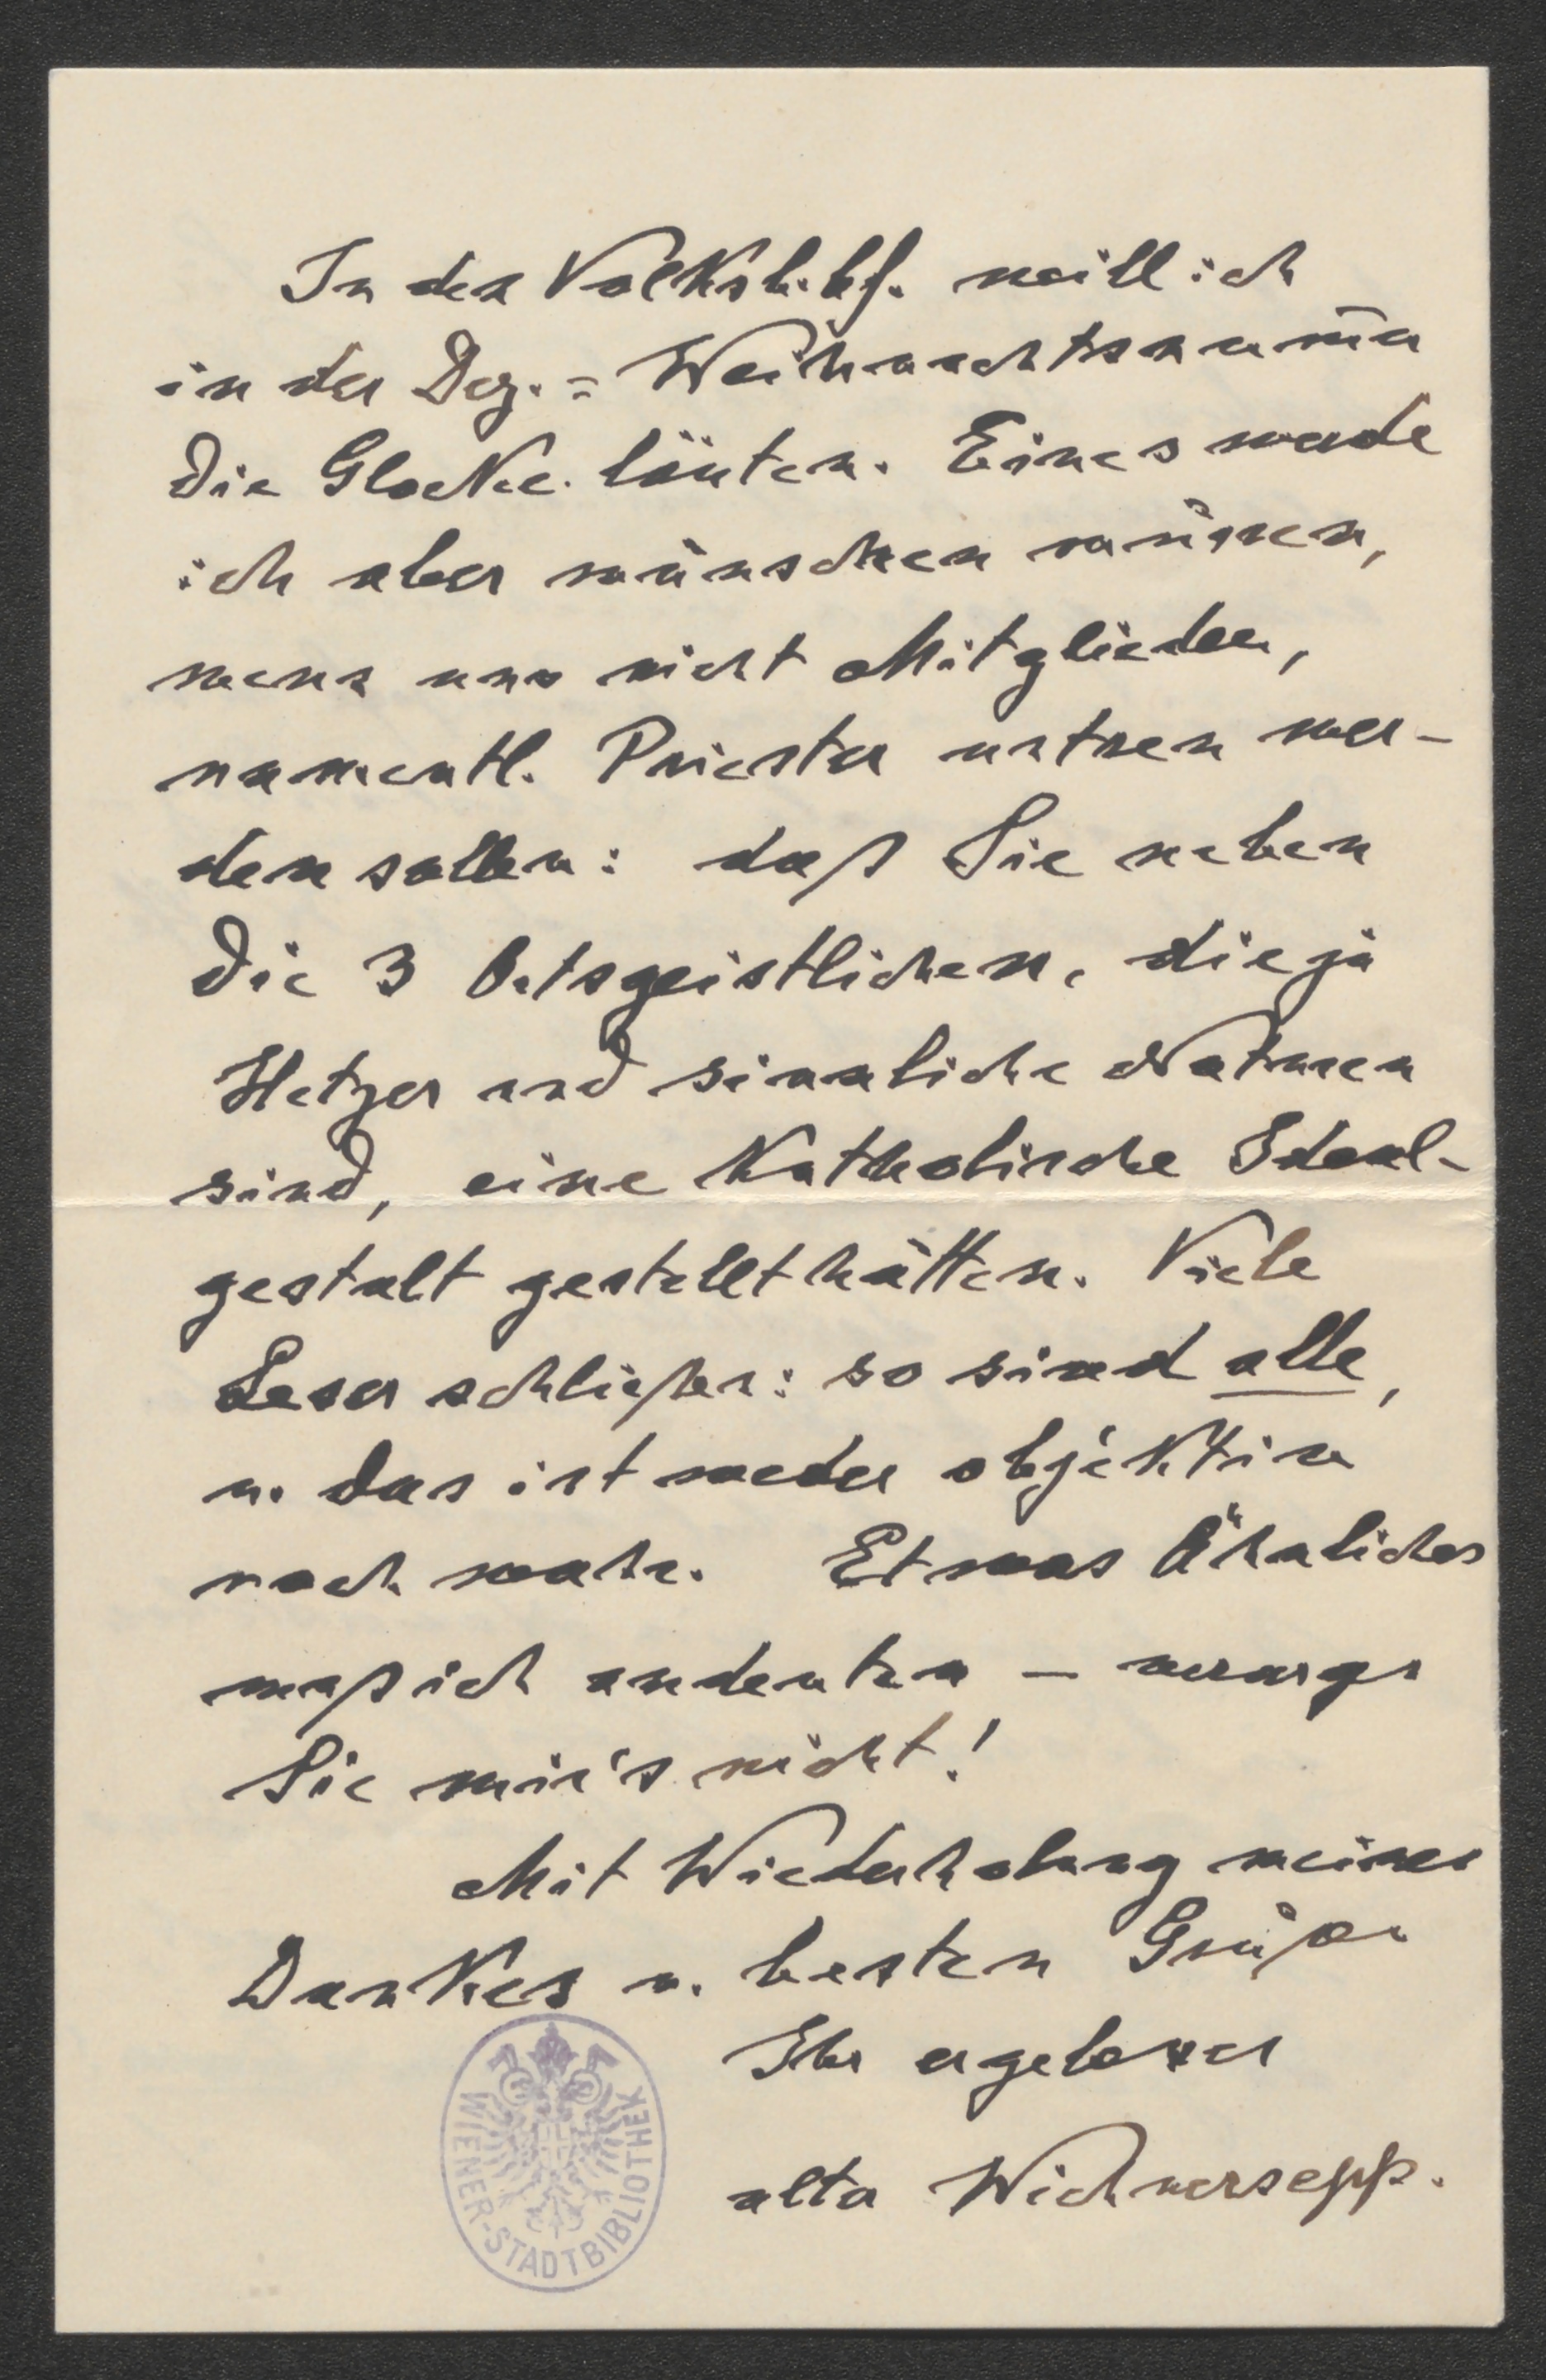 In den Volksb.bl. will ich
in der Dez.= Weihnachtsnum̄er
die Glocke läuten. Eines werde
ich aber wünschen müssen,
wenn uns nicht Mitglieder,
namentl. Priester untreu wer-
den sollen: daß Sie neben
die 3 Ortsgeistlichen, die ja
Hetzer und sinnliche Naturen
sind, eine katholische Ideal-
gestalt gestellt hätten. Viele
Leser schließen: so sind alle,
u. das ist weder objektiv
noch wahr. Etwas Ähnliches
muß ich andeuten – verargen
Sie mir's nicht!
Mit Wiederholung meines
Dankes u. besten Grüßen
Ihr ergebener
alter Wichnersepp.
WIENER-STADTBIBLIOTHEK